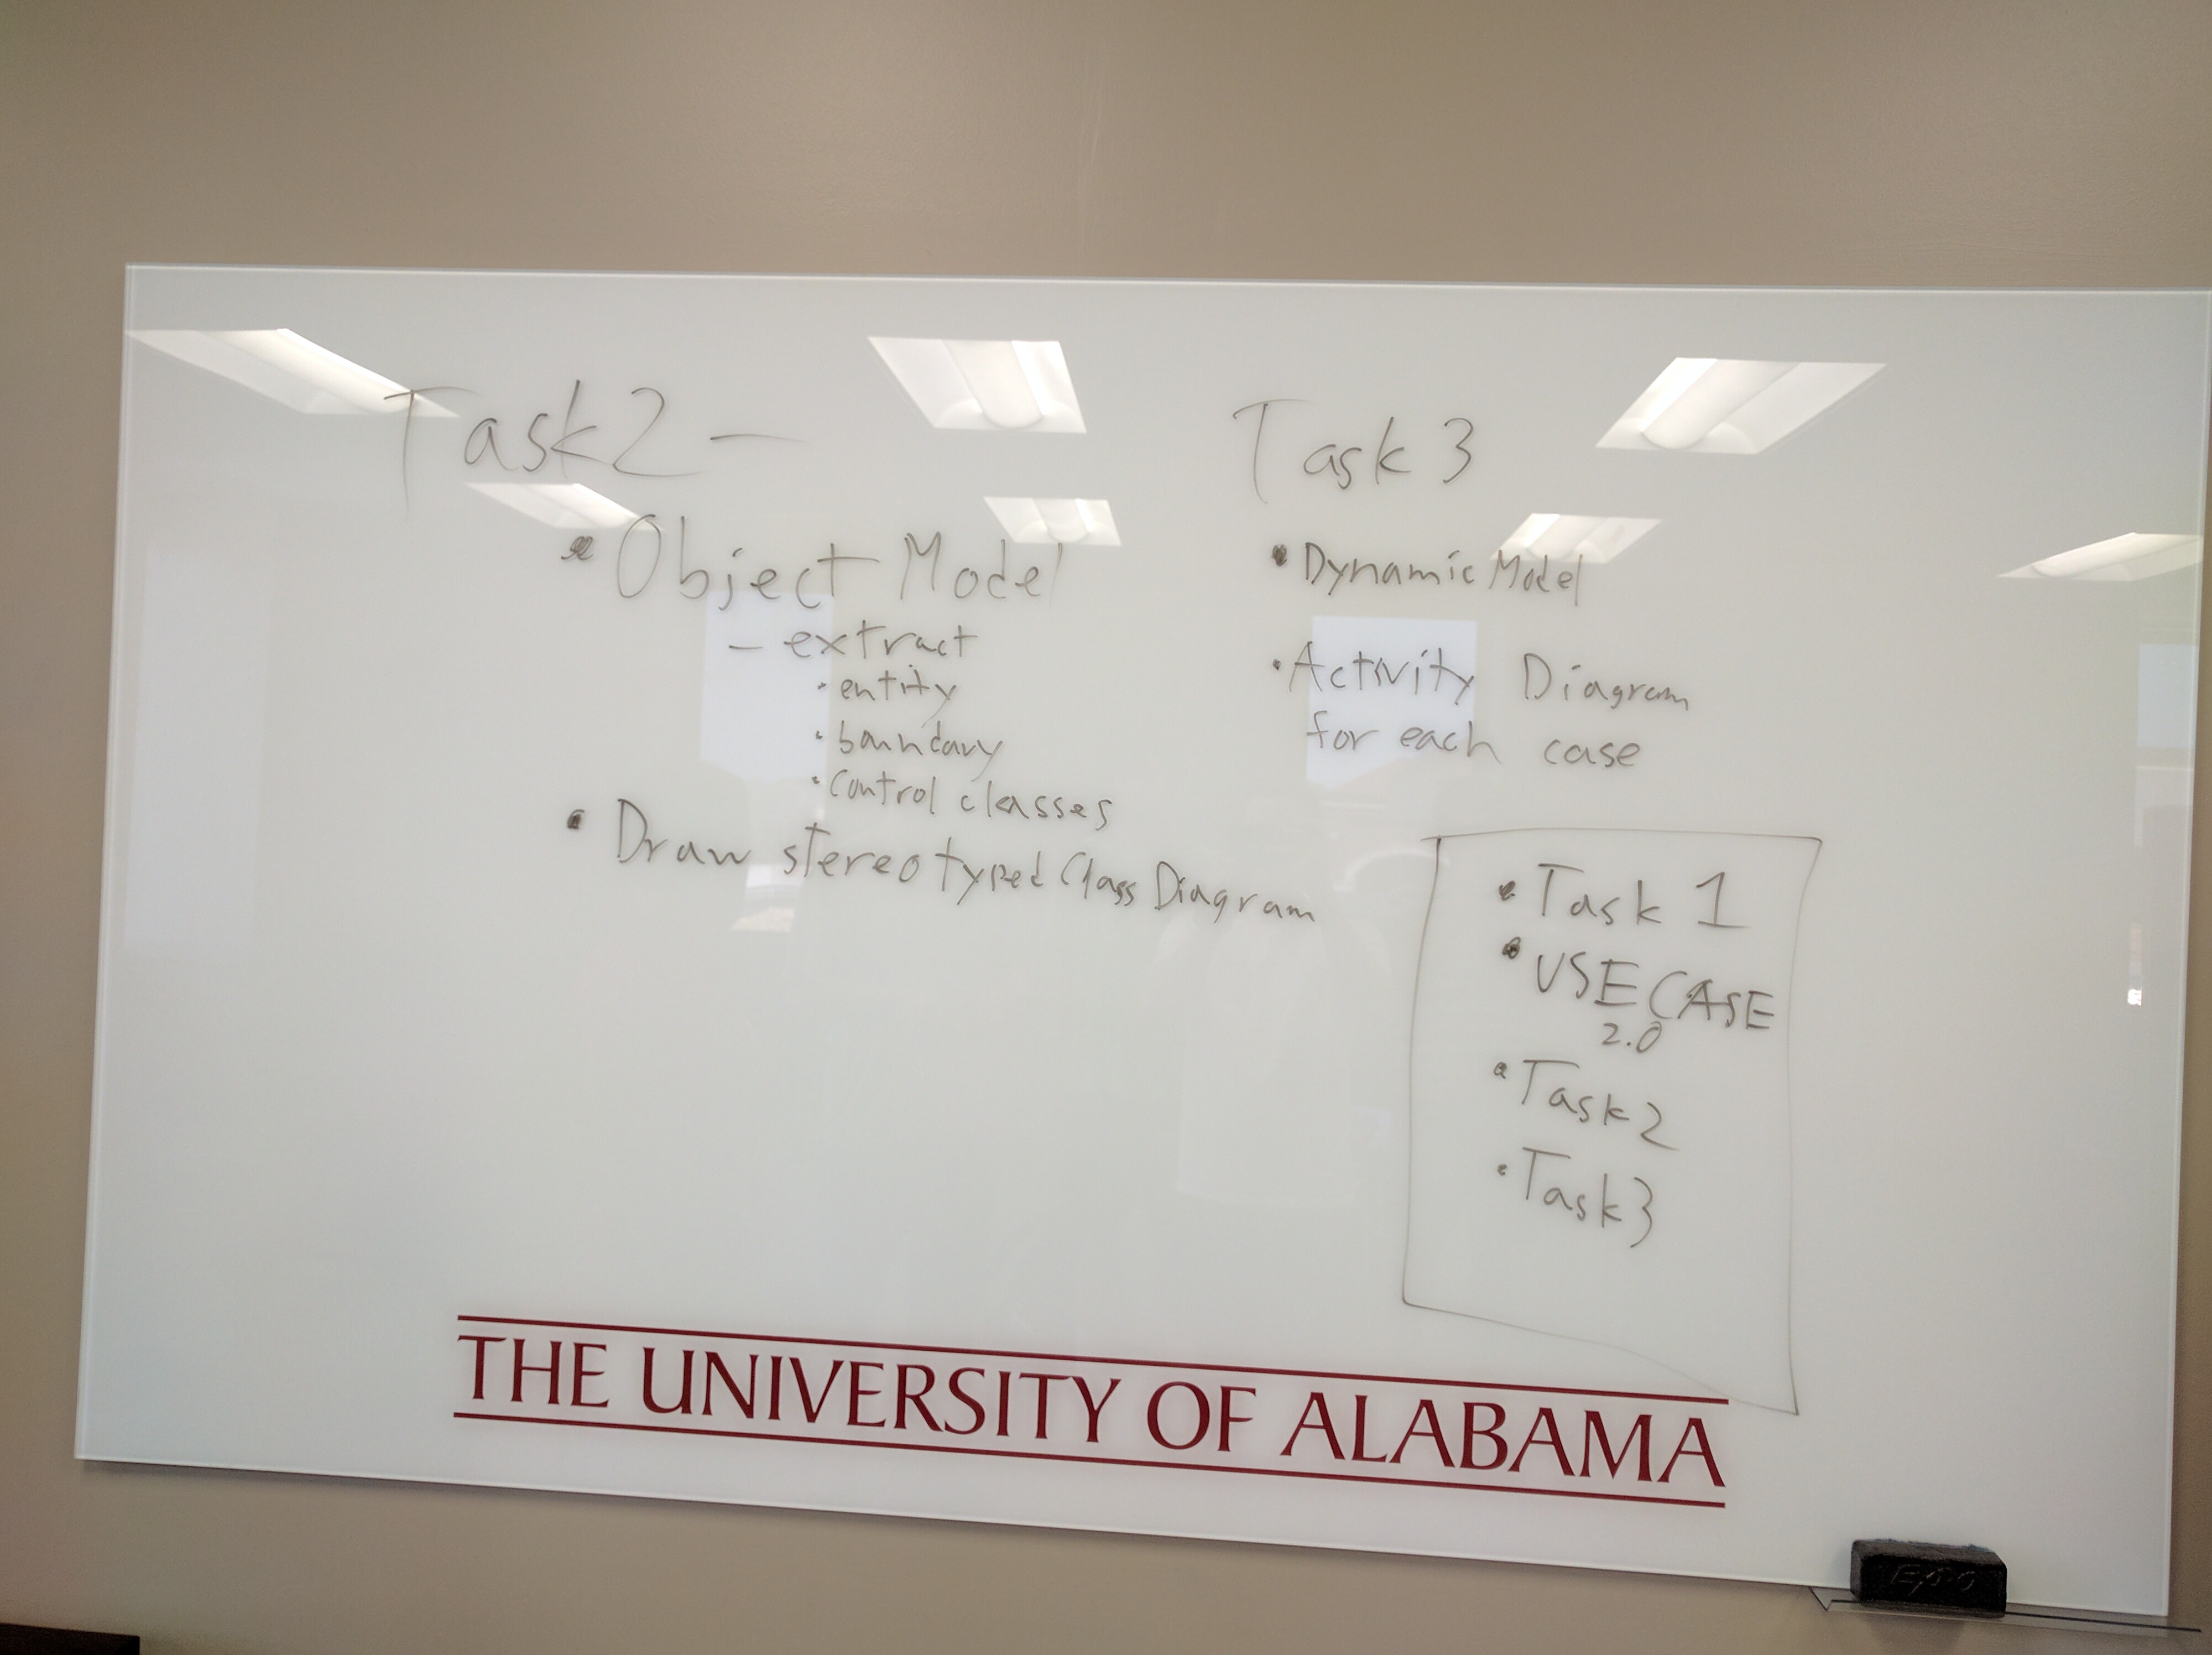 Task2 —
• Object Model
— extract
• entity
• boundary
• Control classes
• Draw stereotyped Class Diagram
Task 3
• Dynamic Model
• Activity Diagram
for each case
• Task 1
• USE CASE
2.0
• Task2
• Task3
THE UNIVERSITY OF ALABAMA